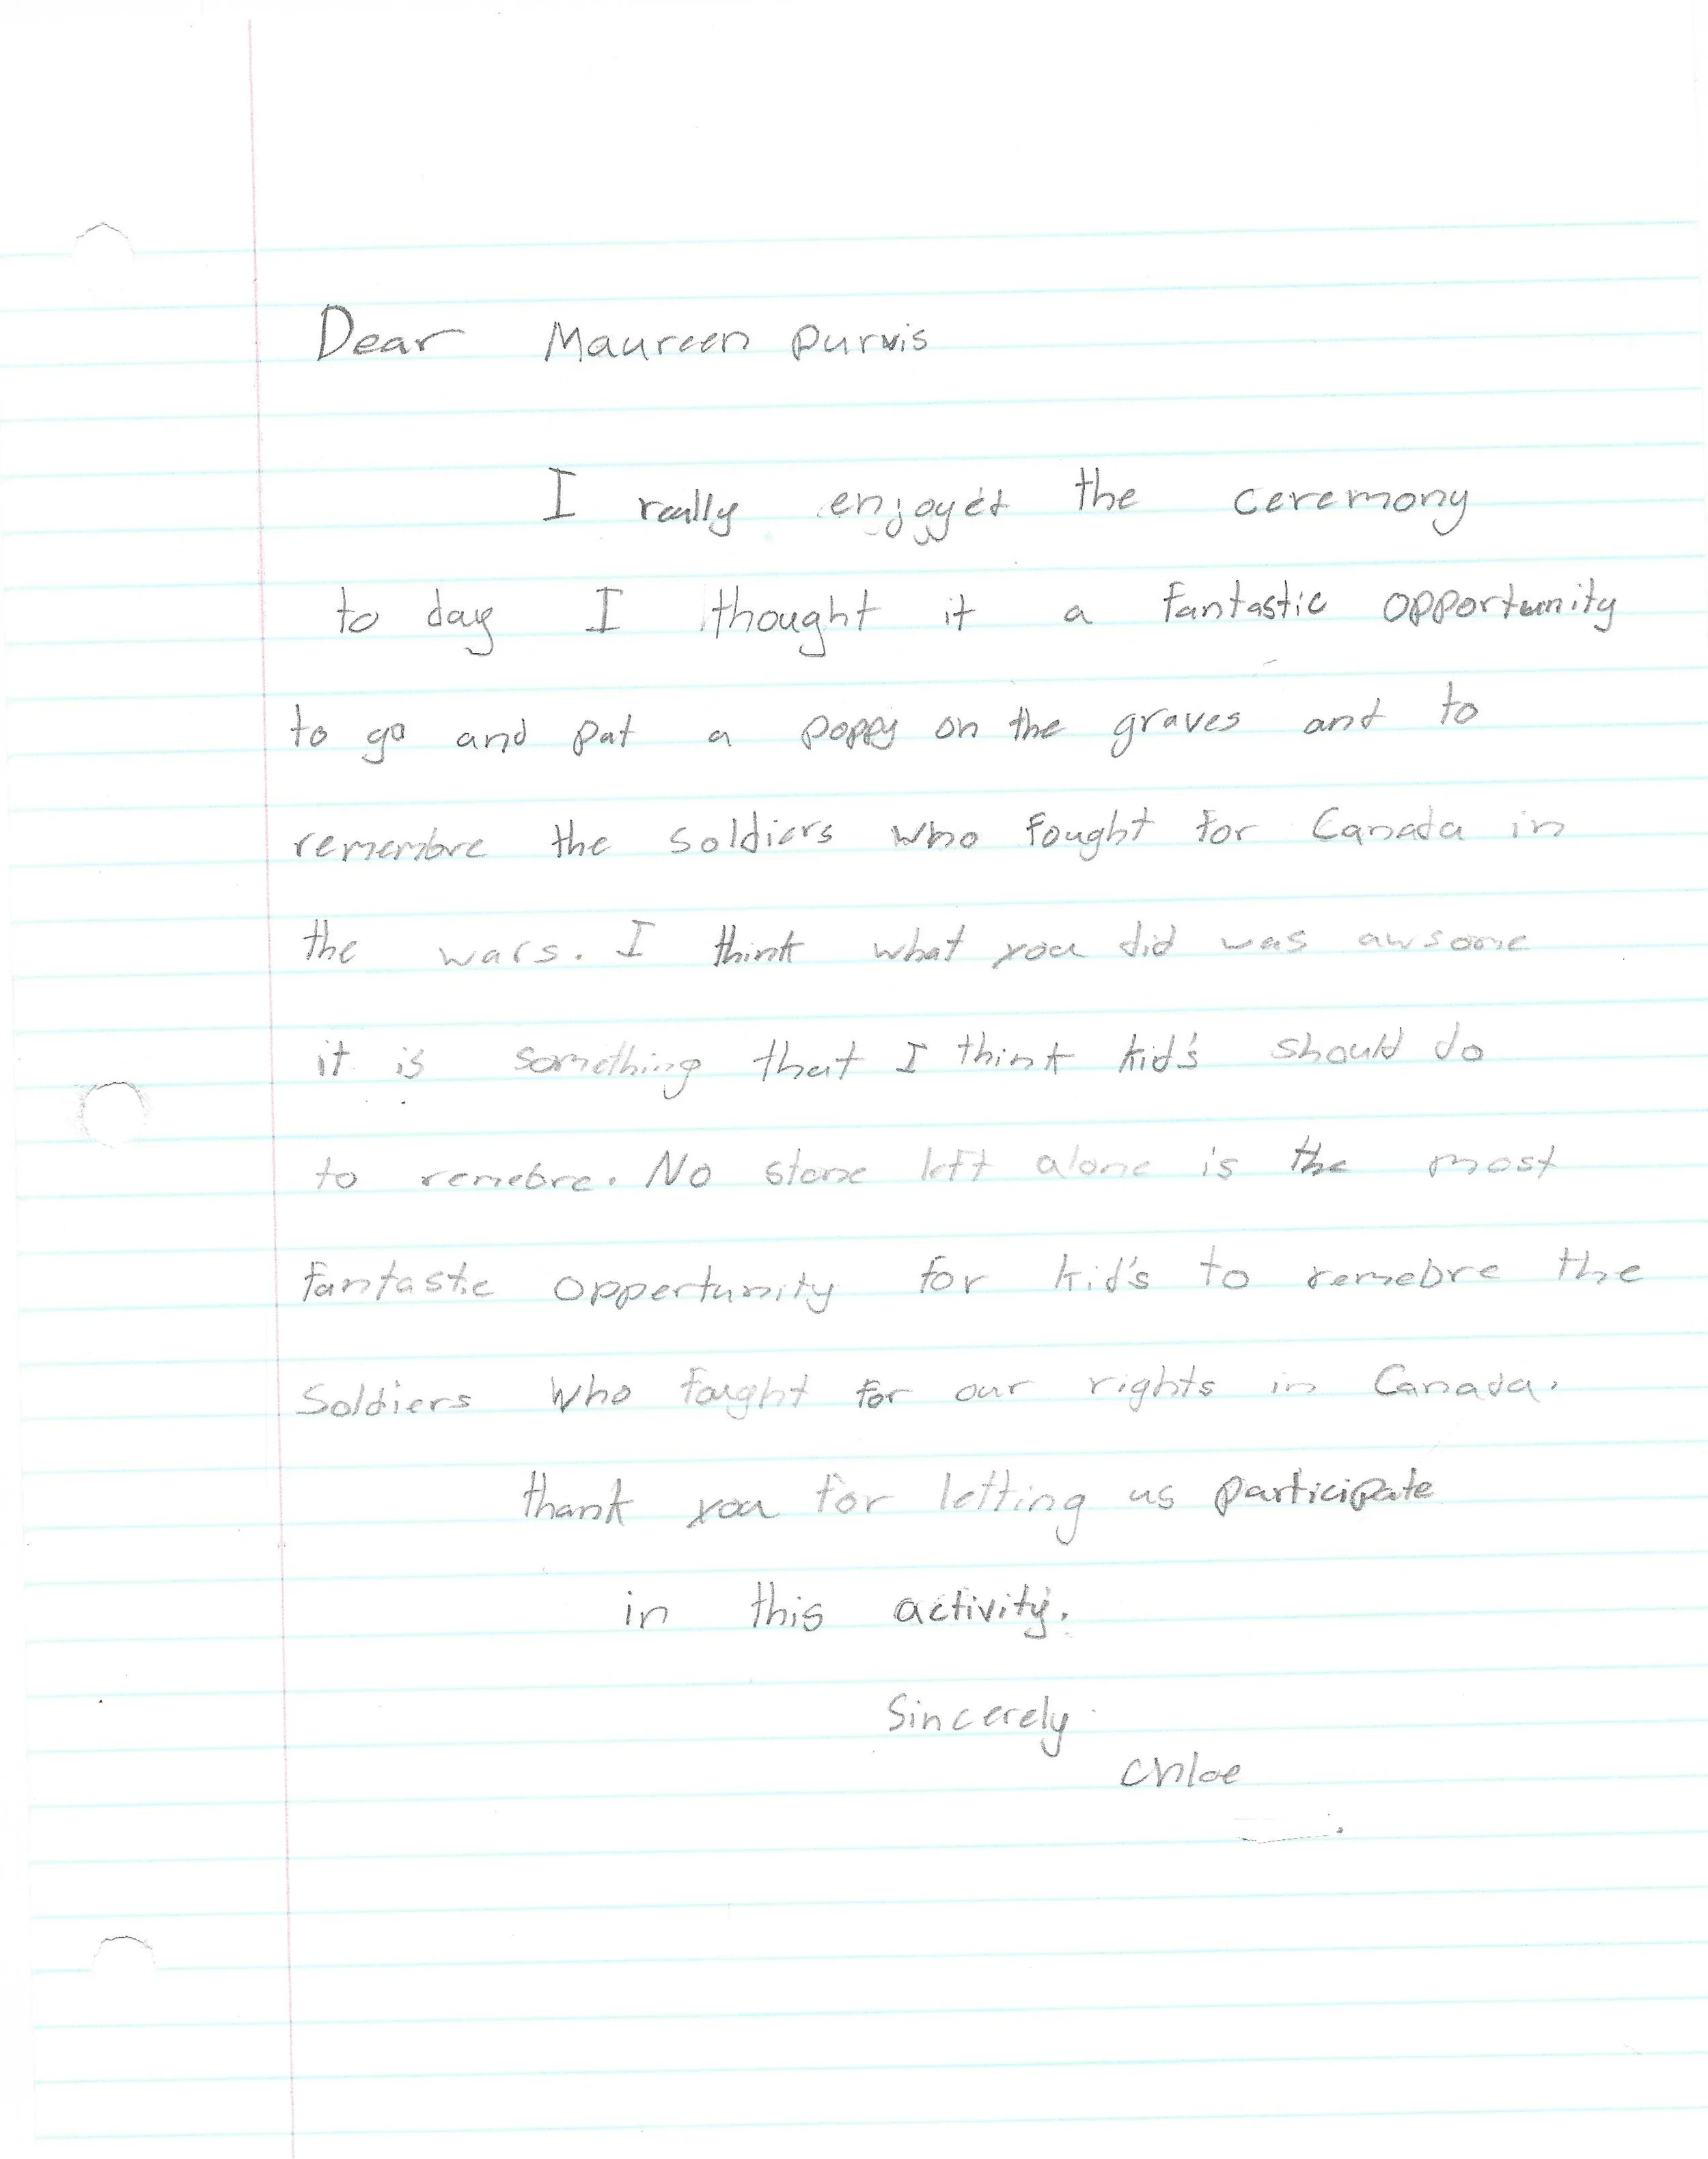 Dear Maureen purvis
I really enjoyed the ceremony
to day I thought it a fantastic opportunity
to go and put a poppy on the graves and to
remembre the soldiers who fought for Canada in
the wars. I think what you did was awsome
it is something that I think kid's should do
to remebre. No stone left alone is the most
fantastic oppertunity for kid's to remebre the
Soldiers who fought for our rights in Canada.
thank you for letting us participate
in this activity.
Sincerely
Chloe